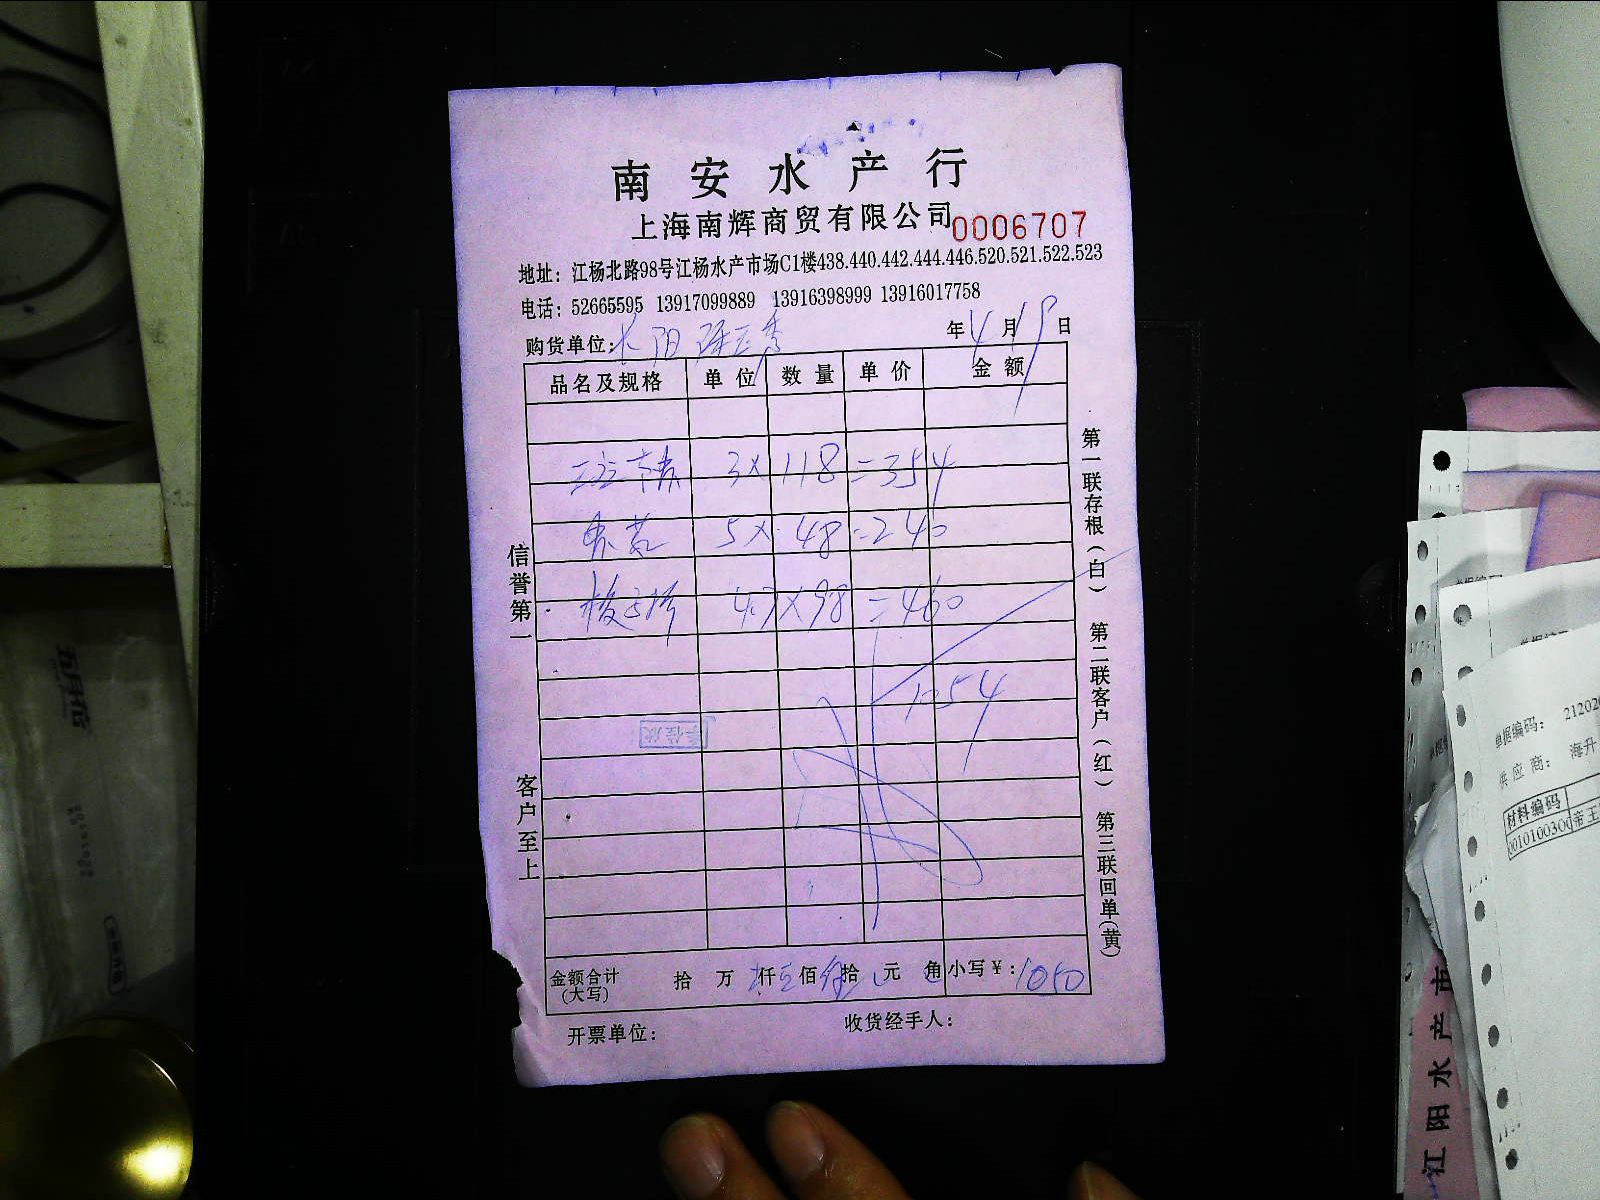 南安水产行
上海南辉商贸有限公司 0006707
地址：江杨北路98号江杨水产市场C1楼438.440.442.444.446.520.521.522.523
电话：52665595 13917099889 13916398999 13916017758
购货单位： 年4月19日
品名及规格 单位 数量 单价 金额
3×118=354
5×48=240
4.7×98=460
1054
金额合计(大写) 拾 万 仟 佰 拾 元 角 小写￥：1050
开票单位： 收货经手人：
信誉第一 客户至上
第一联存根(白) 第二联客户(红) 第三联回单(黄)
单据编码：
供应商：海升
材料编码
江阳水产市